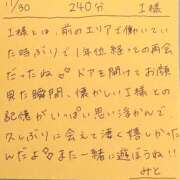 11/30 240分 I様
I様とは、前のエリアで働いてい
た時ぶりで1年位経っての再会
だったね♡ドアを開けてお顔
見た瞬間、懐かしいI様との
記憶がいっぱい思い浮かんで、
久しぶりに会えて凄く嬉しかった
んだよ♡また一緒に遊ぼうね!!
みと